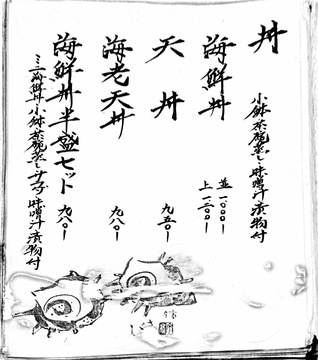 丼
小鉢 茶碗蒸し 味噌汁 漬物付
海鮮丼
並一、〇〇〇ー
上一、三〇〇ー
天丼 九五〇ー
海老天丼 九八〇ー
海鮮丼半盛セット 九八〇ー
ミニ海鮮丼 小鉢 茶碗蒸し サラダ 味噌汁 漬物付